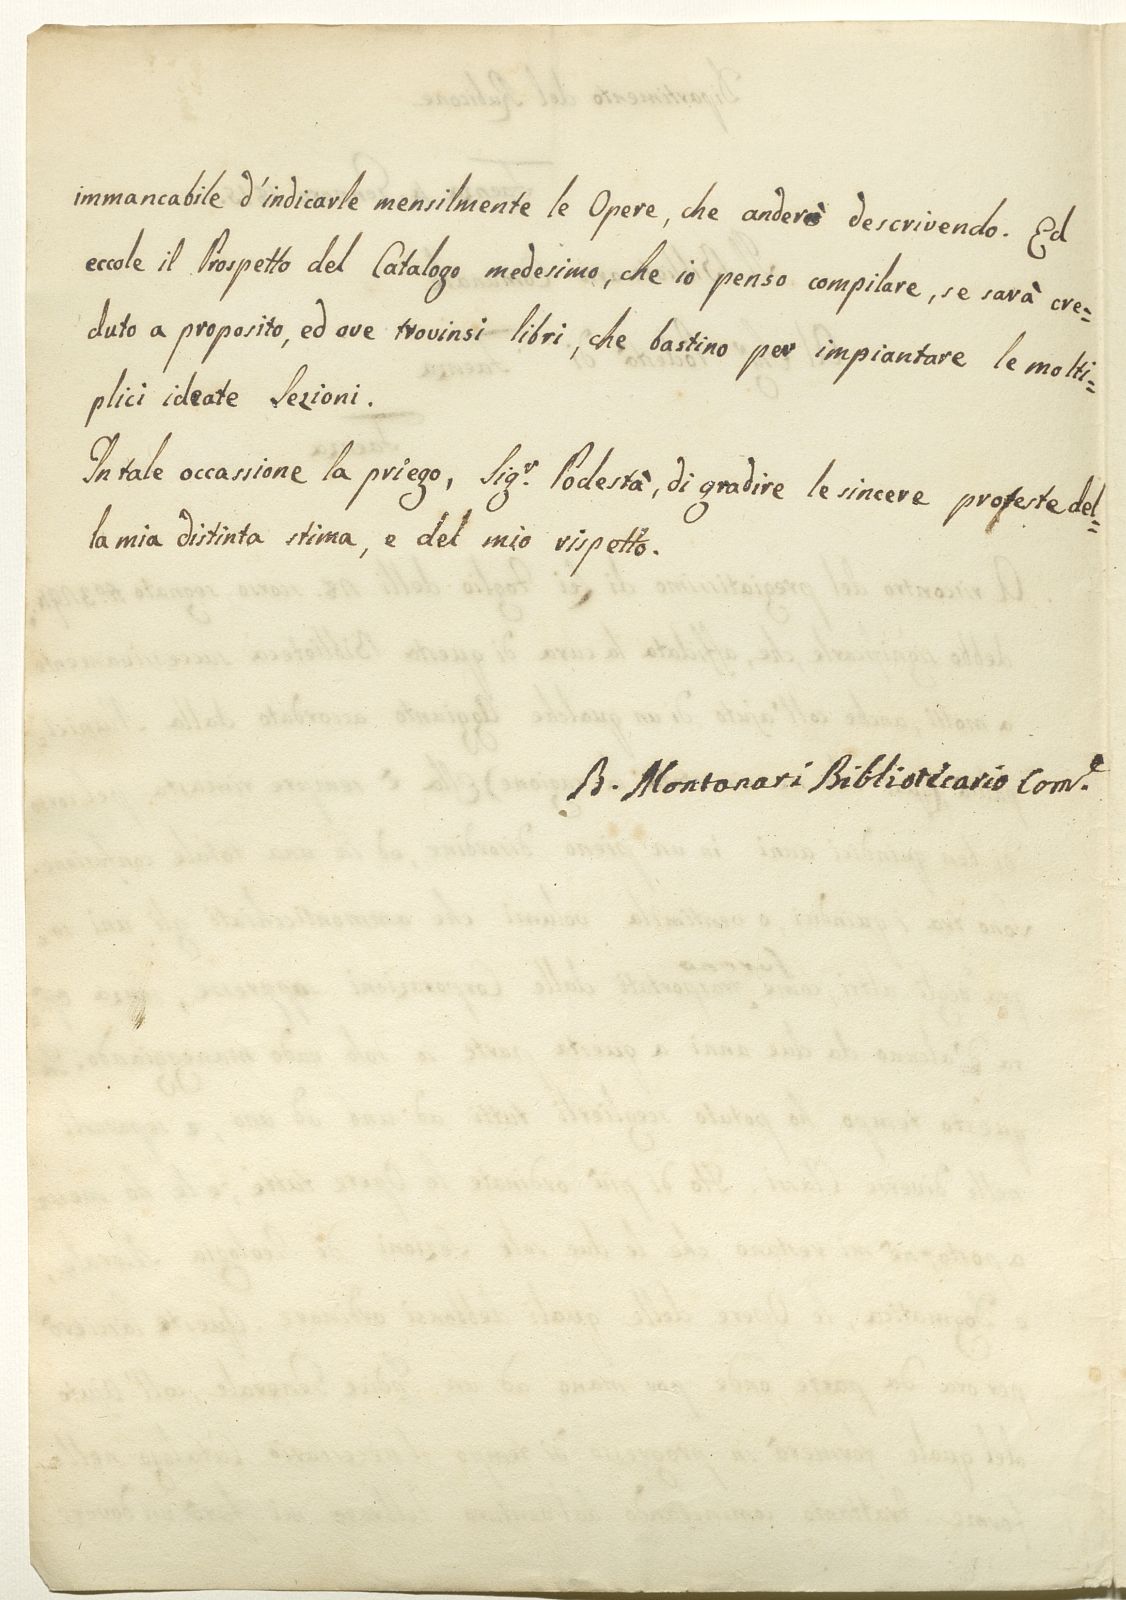 immancabile d'indicarle mensilmente le Opere, che anderò descrivendo. Ed
eccole il Prospetto del Catalogo medesimo, che io penso compilare, se sarà cre=
duto a proposito, ed ove trovinsi libri, che bastino per impiantare le molti=
plici ideate Sezioni.
In tale occassione la priego, Sigr. Podestà, di gradire le sincere proteste del=
la mia distinta stima, e del mio rispetto.
B. Montanari Bibliotecario Com.e